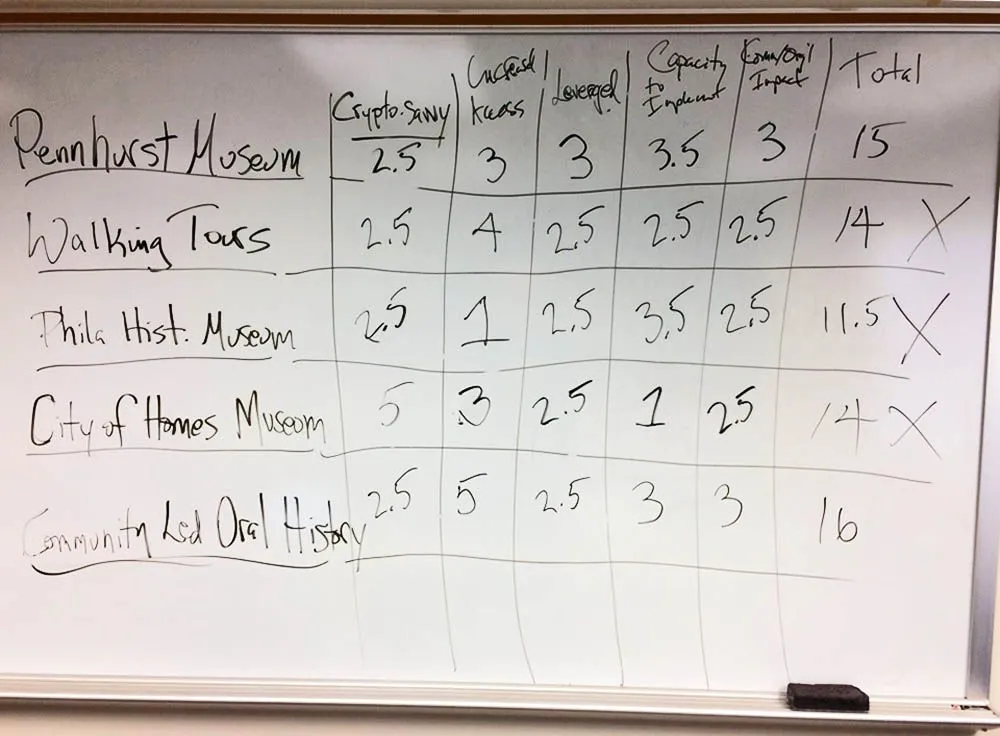 Crypto-Savvy Increased Access Leveraged Capacity to Implement Comm/Org'l Impact Total
Pennhurst Museum 2.5 3 3 3.5 3 15
Walking Tours 2.5 4 2.5 2.5 2.5 14 X
Phila Hist. Museum 2.5 1 2.5 3.5 2.5 11.5 X
City of Homes Museum 5 3 2.5 1 2.5 14 X
Community Led Oral History 2.5 5 2.5 3 3 16